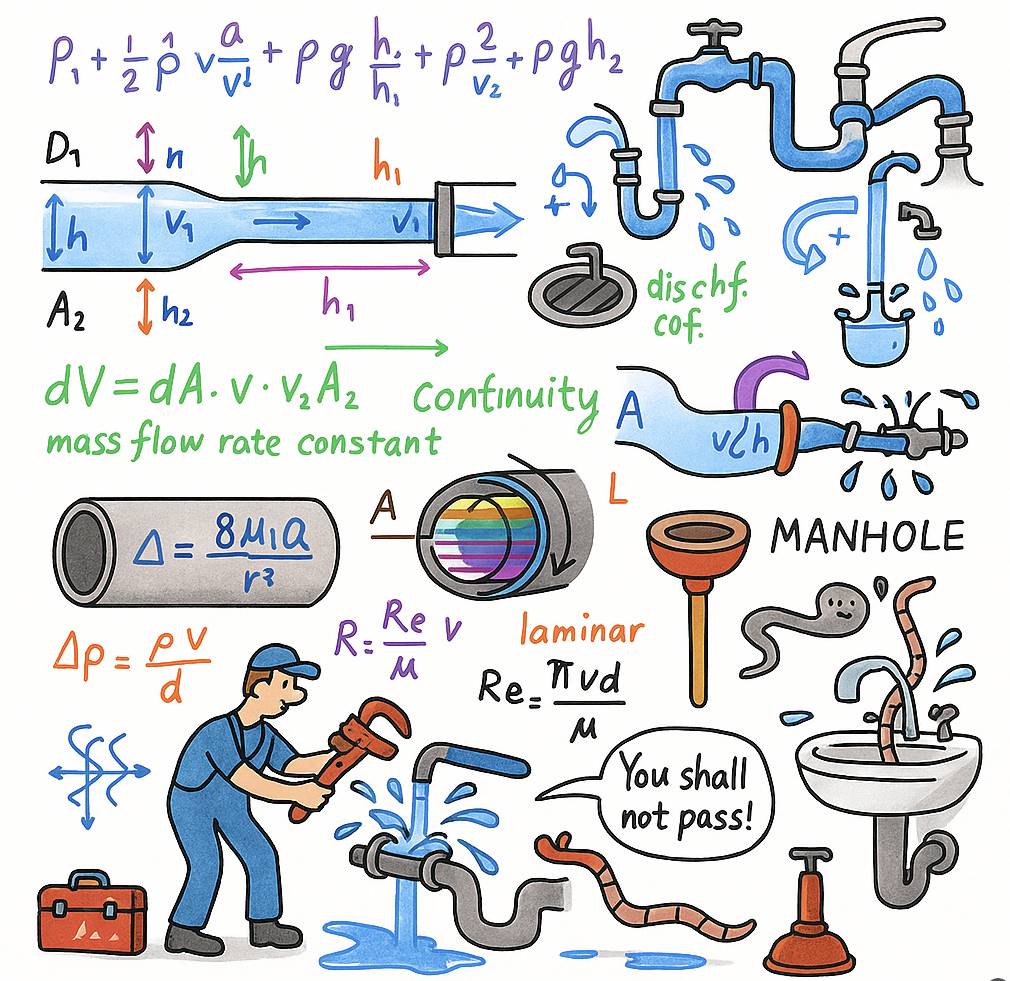 P₁ + 1/2 ρ̂ v a/v¹ + ρ g h₁/h₁ + ρ 2/v₂ + ρgh₂
D₁
n
h
h₁
h
v₁
v₁
A₂
h₂
h₁
+
+
dischf.
cof.
dV = dA. v · v₂A₂
continuity
mass flow rate constant
A
v
h
Δ = 8μ₁a/r³
A
L
MANHOLE
Δρ = ρ v/d
R = Re/μ v
laminar
Re = π vd/μ
You shall
not pass!